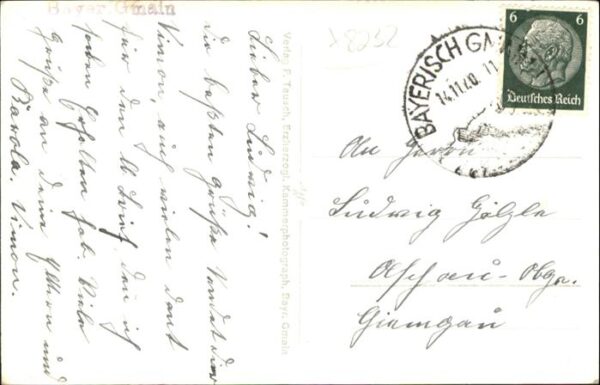 Bayer Gmain
Lieber Ludwig!
die besten Grüße sendet dir
Simon, auch vielen Dank
für den Brief den ich
schon erhalten hab. Viele
Grüße an deine Eltern und
Simon.
Verlag P. Tausch, Erzherzogl. Kammerphotograph, Bayr. Gmain
x8252
BAYERISCH GMAIN
14.11.40. 11
6 6
Deutsches Reich
An Herrn
Ludwig
Aschau - Obg.
Chiemgau